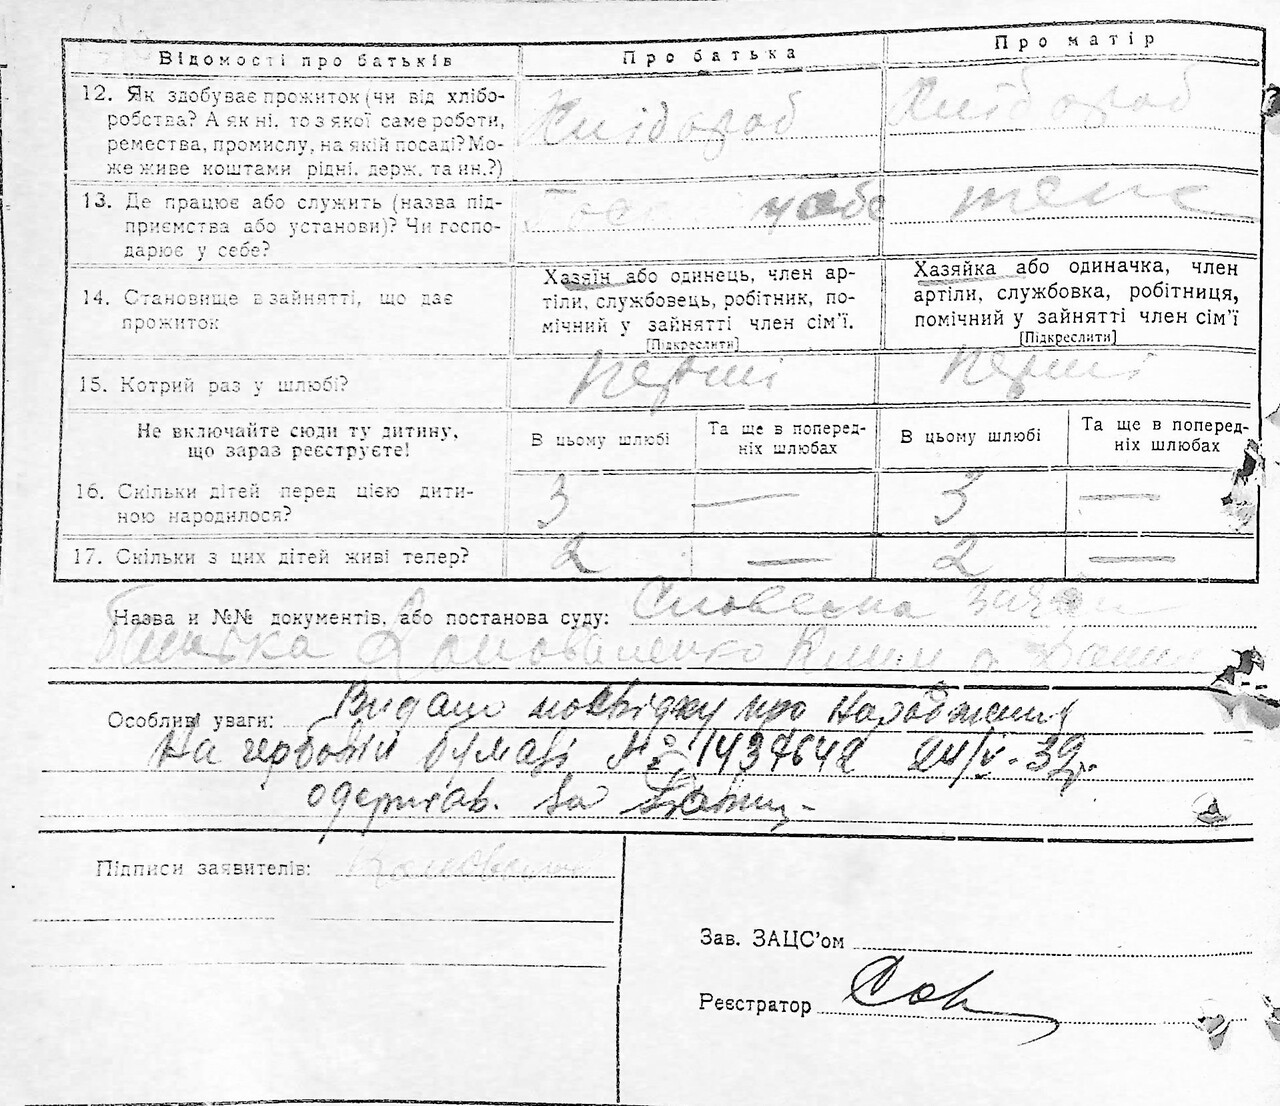 Відомості про батьків
Про батька
Про матір
12. Як здобуває прожиток (чи від хлібо-
робства? А як ні, то з якої саме роботи,
ремества, промислу, на якій посаді? Мо-
же живе коштами рідні, держ. та ин.?)
Хлібороб
Хлібороб
13. Де працює або служить (назва під-
приємства або установи)? Чи госпо-
дарює у себе?
14. Становище в зайнятті, що дає
прожиток
Хазяїн або одинець, член ар-
тіли, службовець, робітник, по-
мічний у зайнятті член сім'ї.
[Підкреслити]
Хазяйка або одиначка, член
артіли, службовка, робітниця,
помічний у зайнятті член сім'ї
[Підкреслити]
15. Котрий раз у шлюбі?
перший
перший
Не включайте сюди ту дитину,
що зараз реєструєте!
В цьому шлюбі
Та ще в поперед-
ніх шлюбах
В цьому шлюбі
Та ще в поперед-
ніх шлюбах
16. Скільки дітей перед цією дити-
ною народилося?
3
—
3
—
17. Скільки з цих дітей живі тепер?
2
—
2
—
Назва и №№ документів, або постанова суду: Словесна заява
батька
Особливі уваги: Видано посвідку про народження
на гербовій бумазі № 1437642
одержав.
Підписи заявителів:
Зав. ЗАЦС'ом
Реєстратор